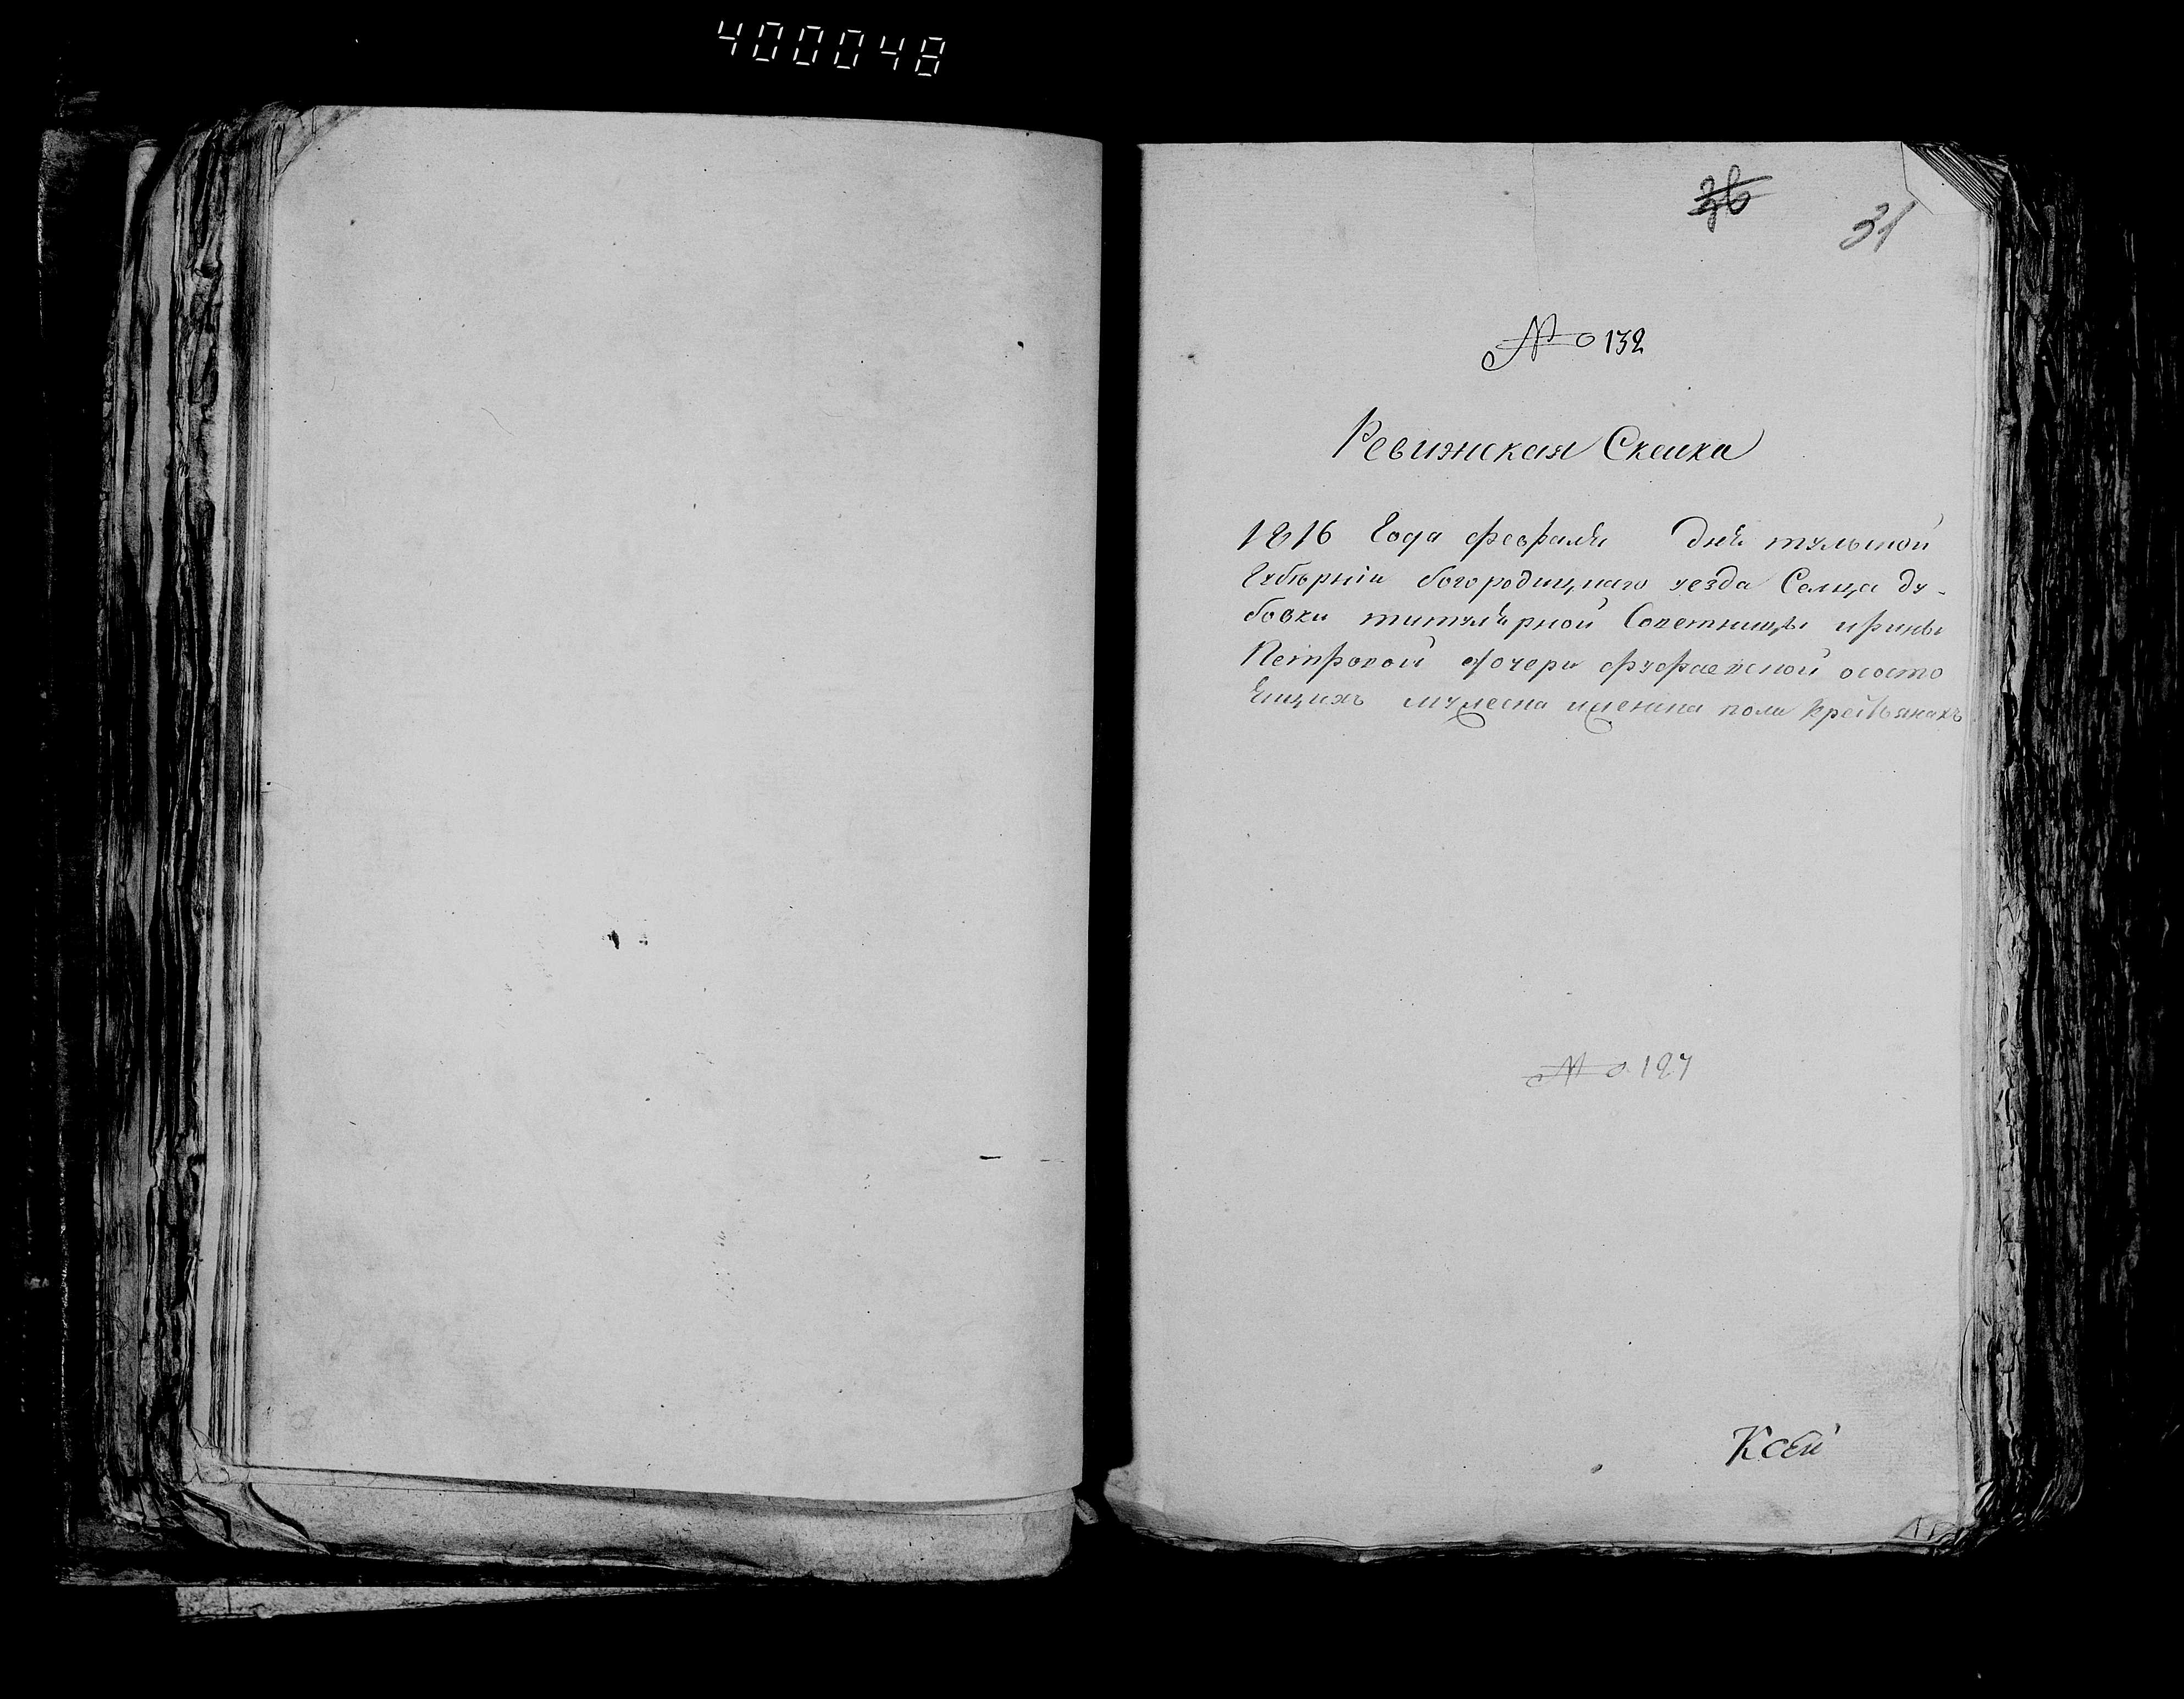 400048
36
31
№ 132
Ревижская Скаска
1816 Года февраля дня тульской
Губернiи богородицкаго уезда Селца ду-
бовки титулярной Советницы ирины
Петровой дочери ососто
ящихъ мужеска ижениска пола Крестьянахъ
№ 127
Ксей